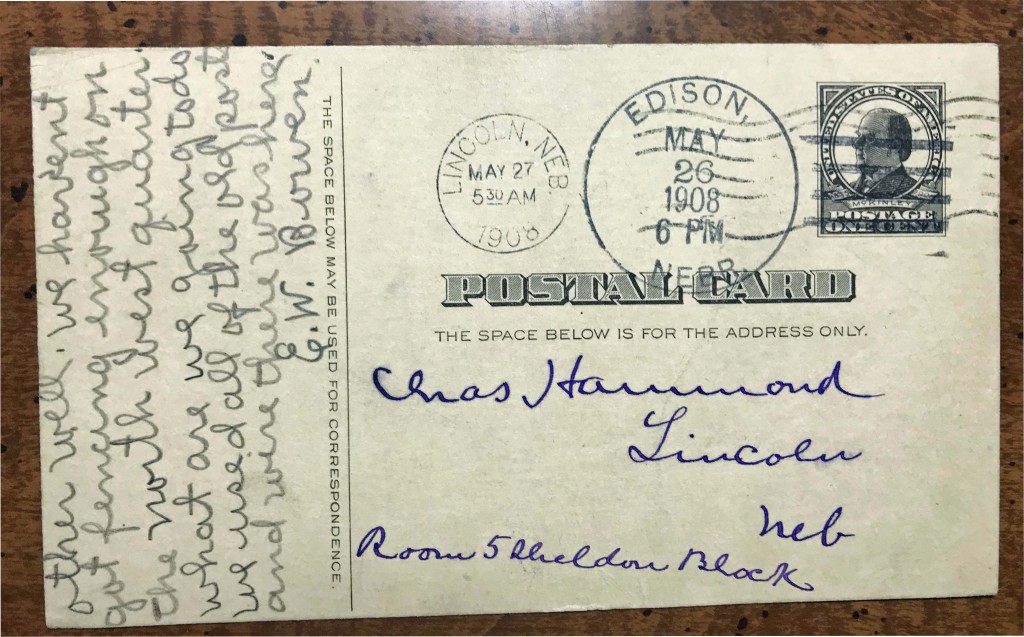 other well. we havent
got fencing enough on
the north west quarter
what are we going to do
we used all of the old post
and wire there was here
E. W. Bowen.
THE SPACE BELOW MAY BE USED FOR CORRESPONDENCE.
LINCOLN, NEB.
MAY 27
5 30 AM
1908
EDISON,
MAY
26
1908
6 PM
NEBR.
UNITED STATES OF AMERICA
McKINLEY
POSTAGE
ONE CENT
POSTAL CARD
THE SPACE BELOW IS FOR THE ADDRESS ONLY.
Chas Hammond
Lincoln
Neb
Room 5 Sheldon Block